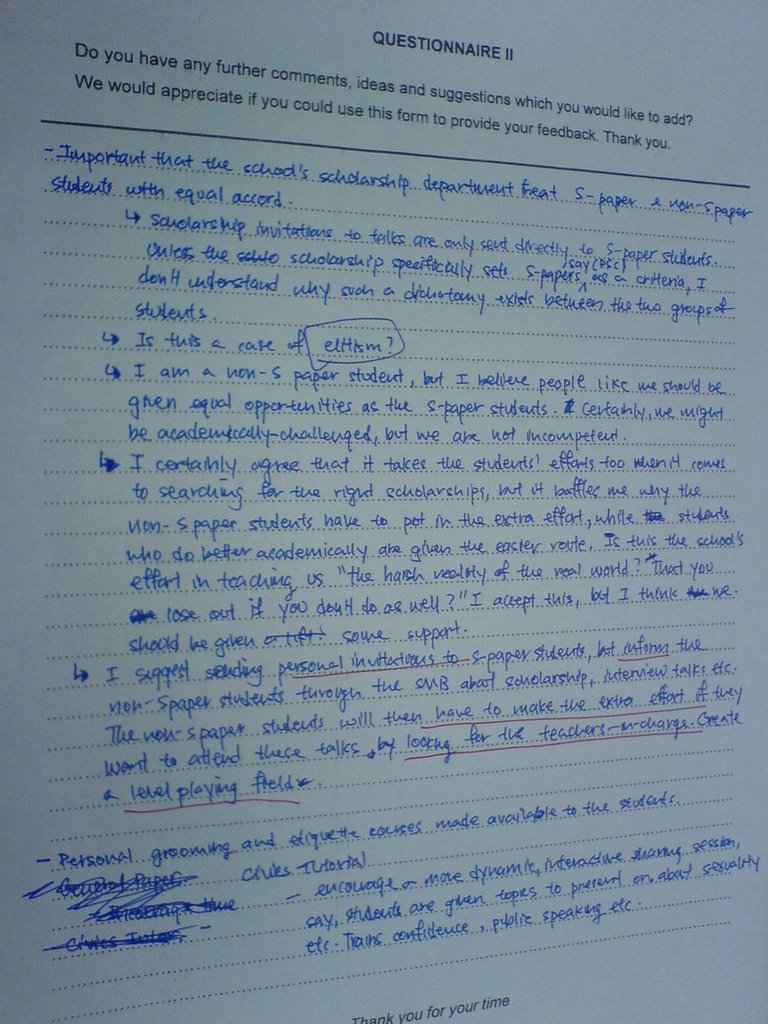 QUESTIONNAIRE II
Do you have any further comments, ideas and suggestions which you would like to add?
We would appreciate if you could use this form to provide your feedback. Thank you.
- Important that the school's scholarship department treat S-paper & non-S paper
students with equal accord.
↳ Scholarship invitations to talks are only sent directly to S-paper students.
Unless the scholarship specifically sets S-papers, say (PSC) as a criteria, I
don't understand why such a dichotomy exists between the two groups of
students.
↳ Is this a case of elitism?
↳ I am a non-S paper student, but I believe people like me should be
given equal opportunities as the S-paper students. Certainly, we might
be academically-challenged, but we are not incompetent.
↳ I certainly agree that it takes the students' efforts too when it comes
to searching for the right scholarships, but it baffles me why the
non-S paper students have to put in the extra effort, while students
who do better academically are given the easier route. Is this the school's
effort in teaching us "the harsh reality of the real world? That you
lose out if you don't do as well?" I accept this, but I think we
should be given a lift? some support.
↳ I suggest sending personal invitations to S-paper students, but inform the
non-S paper students through the SMB about scholarship, interview talks etc.
The non-S paper students will then have to make the extra effort if they
want to attend these talks, by looking for the teachers-in-charge. Create
a level playing field.
- Personal grooming and etiquette courses made available to the students.
General Paper Civics Tutorial
Encourage - encourage a more dynamic, interactive sharing session,
Civics Tutor. - say, students are given topics to present on, about sexuality
etc. Trains confidence, public speaking etc.
Thank you for your time